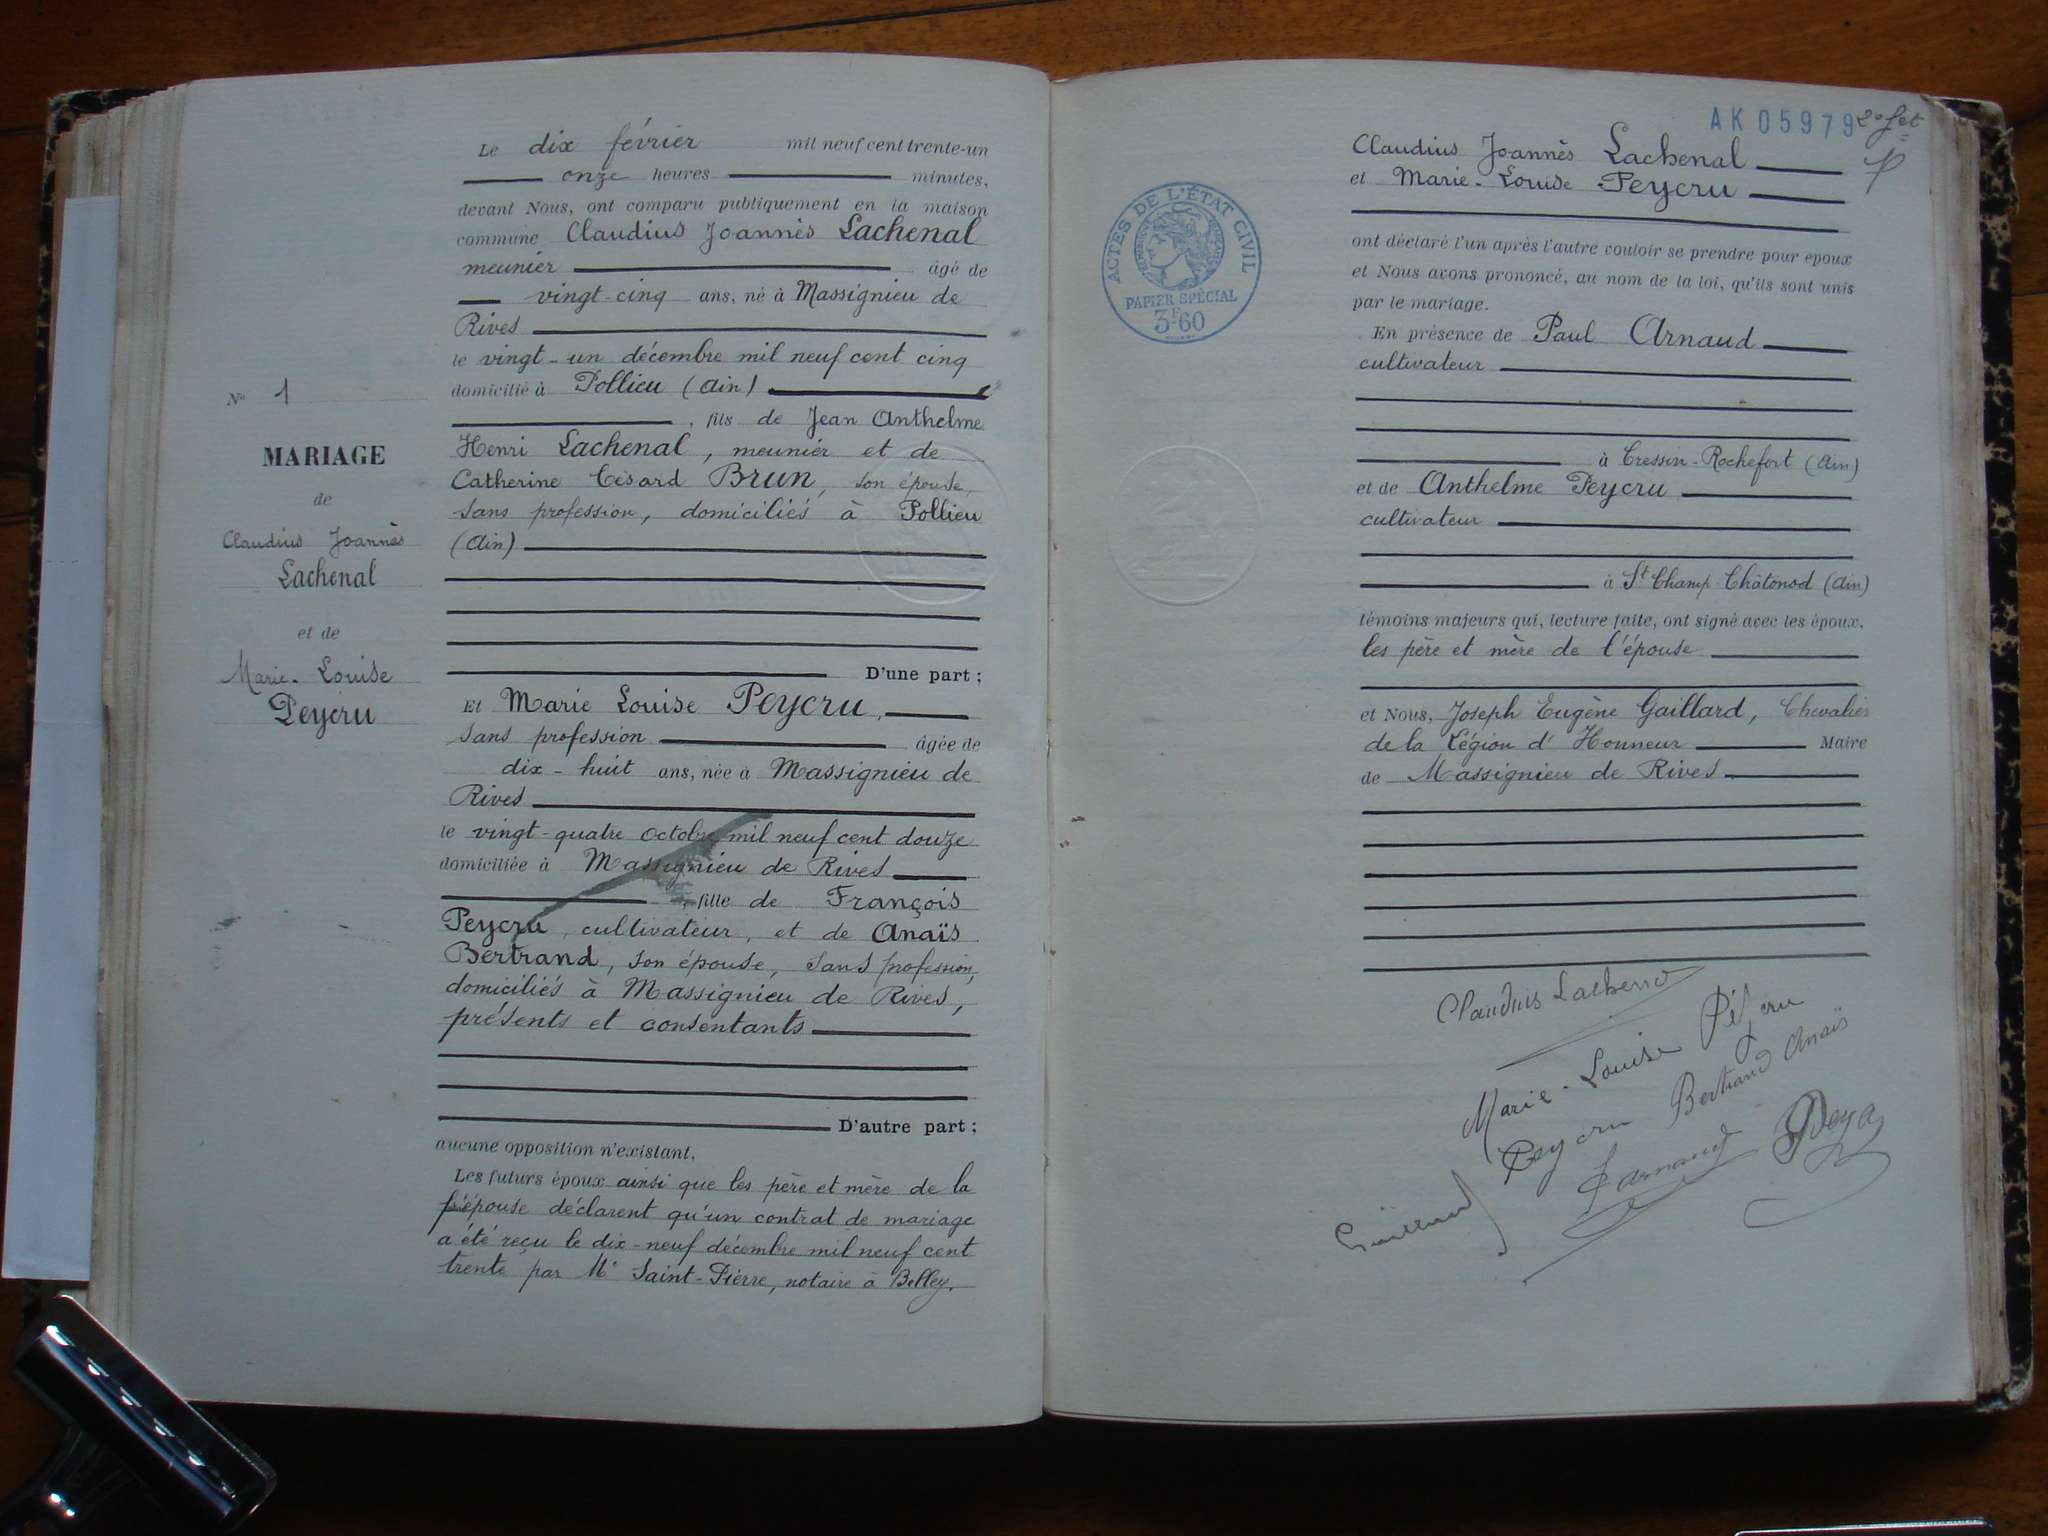 Le dix février mil neuf cent trente-un
onze heures minutes,
devant Nous, ont comparu publiquement en la maison
commune Claudius Joannès Lachenal
meunier âgé de
vingt-cinq ans, né à Massignieu de
Rives
le vingt-un décembre mil neuf cent cinq
domicilié à Pollieu (Ain)
, fils de Jean Anthelme
Henri Lachenal, meunier et de
Catherine Césard Brun, son épouse,
sans profession, domiciliés à Pollieu
(Ain)
D'une part ;
Et Marie Louise Peycru,
sans profession âgée de
dix-huit ans, née à Massignieu de
Rives
le vingt-quatre octobre mil neuf cent douze
domiciliée à Massignieu de Rives
, fille de François
Peycru, cultivateur, et de Anaïs
Bertrand, son épouse, sans profession,
domiciliés à Massignieu de Rives,
présents et consentants
D'autre part ;
aucune opposition n'existant,
Les futurs époux ainsi que les père et mère de la
l'épouse déclarent qu'un contrat de mariage
a été reçu le dix-neuf décembre mil neuf cent
trente par Me Saint-Pierre, notaire à Belley.
No 1
MARIAGE
de
Claudius Joannès
Lachenal
et de
Marie-Louise
Peycru
AK 05979
2e fet
Claudius Joannès Lachenal
et Marie-Louise Peycru
ACTES DE L'ÉTAT CIVIL
PAPIER SPÉCIAL
3F60
ont déclaré l'un après l'autre vouloir se prendre pour epoux
et Nous avons prononcé, au nom de la loi, qu'ils sont unis
par le mariage.
En présence de Paul Arnaud
cultivateur
à Cressin-Rochefort (Ain)
et de Anthelme Peycru
cultivateur
à St Champ-Châtonod (Ain)
témoins majeurs qui, lecture faite, ont signé avec les époux,
les père et mère de l'épouse
et Nous, Joseph Eugène Gaillard, Chevalier
de la Légion d'Honneur Maire
de Massignieu de Rives
Claudius Lachenal
Marie-Louise Péycru
Peycru Bertrand Anaïs
Gaillard Parnaud